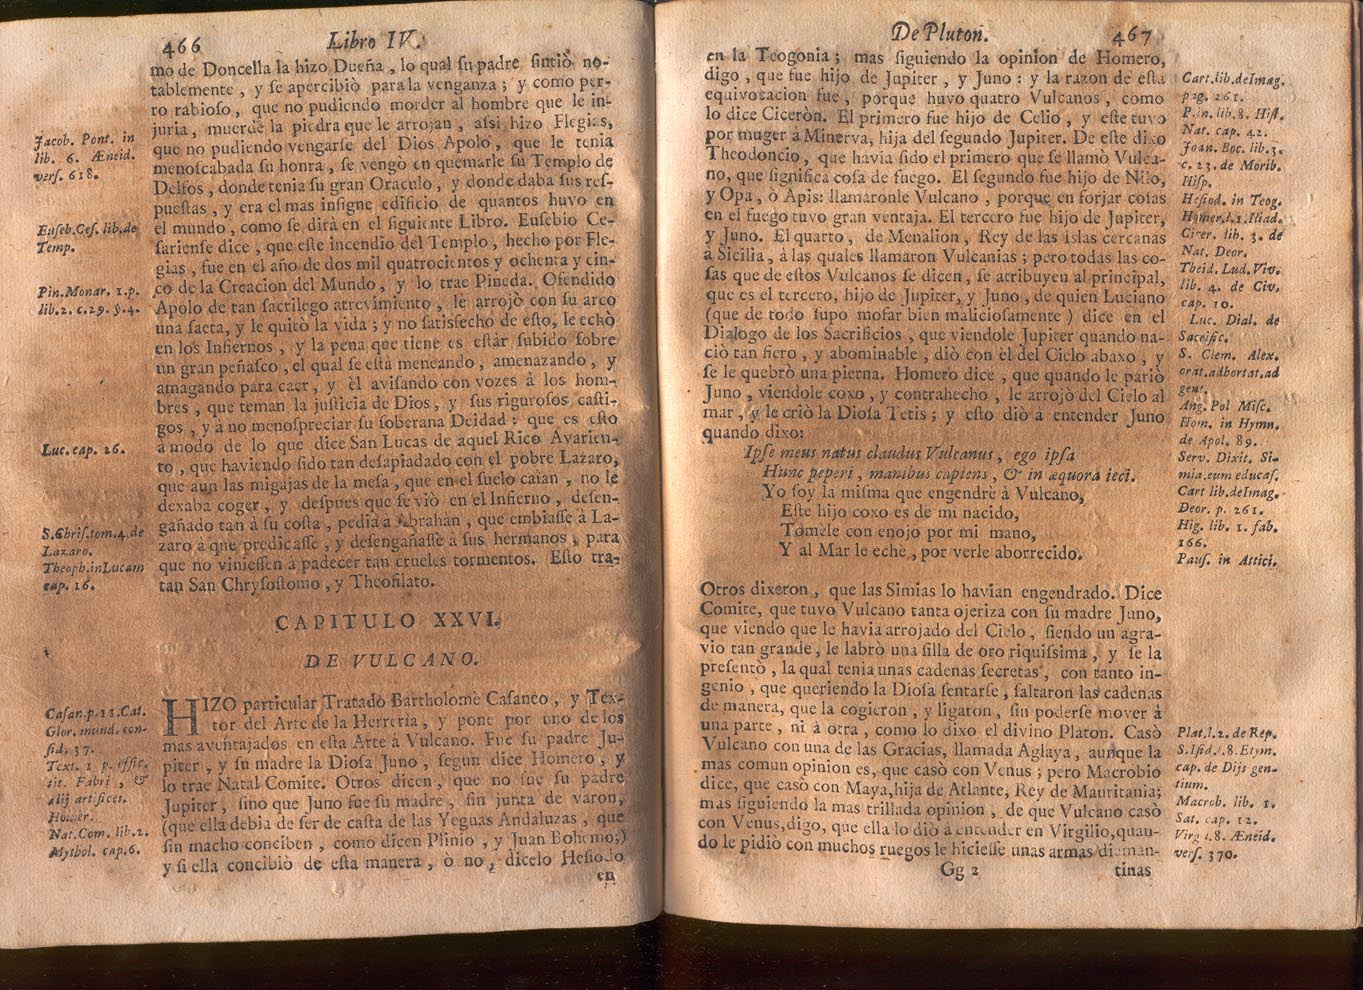 466
Libro IV.
mo de Doncella la hizo Dueña, lo qual ſu padre ſintiò no-
tablemente, y ſe apercibiò para la venganza; y como per-
ro rabioſo, que no pudiendo morder al hombre que le in-
juria, muerde la piedra que le arrojan, aſsi hizo Flegias,
que no pudiendo vengarſe del Dios Apolo, que le tenia
menoſcabada ſu honra, ſe vengò en quemarle ſu Templo de
Delfos, donde tenia ſu gran Oraculo, y donde daba ſus reſ-
pueſtas, y era el mas inſigne edificio de quantos huvo en
el mundo, como ſe dirà en el ſiguiente Libro. Euſebio Ce-
ſarienſe dice, que eſte incendio del Templo, hecho por Fle-
gias, fue en el año de dos mil quatrocientos y ochenta y cin-
co de la Creacion del Mundo, y lo trae Pineda. Ofendido
Apolo de tan ſacrilego atrevimiento, le arrojò con ſu arco
una ſaeta, y le quitò la vida; y no ſatisfecho de eſto, le echò
en los Infiernos, y la pena que tiene es eſtàr ſubido ſobre
un gran peñaſco, el qual ſe eſtà meneando, amenazando, y
amagando para caer, y èl aviſando con vozes à los hom-
bres, que teman la juſticia de Dios, y ſus riguroſos caſti-
gos, y à no menoſpreciar ſu ſoberana Deidad: que es eſto
à modo de lo que dice San Lucas de aquel Rico Avarien-
to, que haviendo ſido tan deſapiadado con el pobre Lazaro,
que aun las migajas de la meſa, que en el ſuelo caìan, no le
dexaba coger, y deſpues que ſe viò en el Infierno, deſen-
gañado tan à ſu coſta, pedia à Abrahàn, que embiaſſe à La-
zaro à que predicaſſe, y deſengañaſſe à ſus hermanos, para
que no vinieſſen à padecer tan crueles tormentos. Eſto tra-
tan San Chryſoſtomo, y Theofilato.
Jacob. Pont. in
lib. 6. Æneid.
verſ. 618.
Euſeb.Ceſ. lib.de
Temp.
Pin.Monar. 1.p.
lib.2. c.29. §.4.
Luc. cap. 26.
S.Chriſ.tom.4.de
Lazaro.
Theoph.inLucam
cap. 16.
CAPITULO XXVI.
DE VULCANO.
HIZO particular Tratado Bartholomè Caſaneo, y Tex-
tor del Arte de la Herrerìa, y pone por uno de los
mas aventajados en eſta Arte à Vulcano. Fue ſu padre Ju-
piter, y ſu madre la Dioſa Juno, ſegun dice Homero, y
lo trae Natal Comite. Otros dicen, que no fue ſu padre
Jupiter, ſino que Juno fue ſu madre, ſin junta de varon,
(que ella debia de ſer de caſta de las Yeguas Andaluzas, que
ſin macho conciben, como dicen Plinio, y Juan Bohemo;)
y ſi ella concibiò de eſta manera, ò no, dicelo Heſiodo
en
Caſan.p.11.Cat.
Glor. mund. con-
ſid. 37.
Text. 1 p. offic.
tit. Fabri, &
alij artifices.
Homer.
Nat.Com. lib.2.
Mythol. cap.6.
De Pluton.
467
en la Teogonia; mas ſiguiendo la opinion de Homero,
digo, que fue hijo de Jupiter, y Juno: y la razon de eſta
equivocacion fue, porque huvo quatro Vulcanos, como
lo dice Ciceròn. El primero fue hijo de Celio, y eſte tuvo
por muger à Minerva, hija del ſegundo Jupiter. De eſte dixo
Theodoncio, que havia ſido el primero que ſe llamò Vulca-
no, que ſignifica coſa de fuego. El ſegundo fue hijo de Nilo,
y Opa, ò Apis: llamaronle Vulcano, porque en forjar coſas
en el fuego tuvo gran ventaja. El tercero fue hijo de Jupiter,
y Juno. El quarto, de Menalion, Rey de las islas cercanas
à Sicilia, à las quales llamaron Vulcanias; pero todas las co-
ſas que de eſtos Vulcanos ſe dicen, ſe atribuyen al principal,
que es el tercero, hijo de Jupiter, y Juno, de quien Luciano
(que de todo ſupo mofar bien malicioſamente) dice en el
Dialogo de los Sacrificios, que viendole Jupiter quando na-
ciò tan fiero, y abominable, diò con èl del Cielo abaxo, y
ſe le quebrò una pierna. Homero dice, que quando le pariò
Juno, viendole coxo, y contrahecho, le arrojò del Cielo al
mar, y le criò la Dioſa Tetis; y eſto diò à entender Juno
quando dixo:
Ipſe meus natus claudus Vulcanus, ego ipſa
Hunc peperi, manibus capiens, & in æquora ieci.
Yo ſoy la miſma que engendrè à Vulcano,
Eſte hijo coxo es de mi nacido,
Tomèle con enojo por mi mano,
Y al Mar le echè, por verle aborrecido.
Otros dixeron, que las Simias lo havian engendrado. Dice
Comite, que tuvo Vulcano tanta ojeriza con ſu madre Juno,
que viendo que le havia arrojado del Cielo, ſiendo un agra-
vio tan grande, le labrò una ſilla de oro riquiſsima, y ſe la
preſentò, la qual tenia unas cadenas ſecretas, con tanto in-
genio, que queriendo la Dioſa ſentarſe, ſaltaron las cadenas
de manera, que la cogieron, y ligaron, ſin poderſe mover à
una parte, ni à otra, como lo dixo el divino Platon. Casò
Vulcano con una de las Gracias, llamada Aglaya, aunque la
mas comun opinion es, que casò con Venus; pero Macrobio
dice, que casò con Maya, hija de Atlante, Rey de Mauritania;
mas ſiguiendo la mas trillada opinion, de que Vulcano casò
con Venus, digo, que ella lo diò à entender en Virgilio, quan-
do le pidiò con muchos ruegos le hicieſſe unas armas diaman-
Gg 2
tinas
Cart.lib.deImag.
pag. 261.
Plin. lib.8. Hiſt.
Nat. cap. 42.
Joan. Boc. lib.3.
c. 23. de Morib.
Hiſp.
Heſiod. in Teog.
Homer.l.1.Iliad.
Cicer. lib. 3. de
Nat. Deor.
Theid. Lud. Viv.
lib. 4. de Civ.
cap. 10.
Luc. Dial. de
Sacrific.
S. Clem. Alex.
orat.adhortat.ad
gent.
Ang. Pol Miſc.
Hom. in Hymn.
de Apol. 89.
Serv. Dixit. Si-
mia.eum educaſ.
Cart lib.deImag.
Deor. p. 261.
Hig. lib. 1. fab.
166.
Pauſ. in Attici.
Plat.l.2. de Rep.
S.Iſid.l.8.Etym.
cap. de Dijs gen-
tium.
Macrob. lib. 1.
Sat. cap. 12.
Virg l.8. Æneid.
verſ. 370.